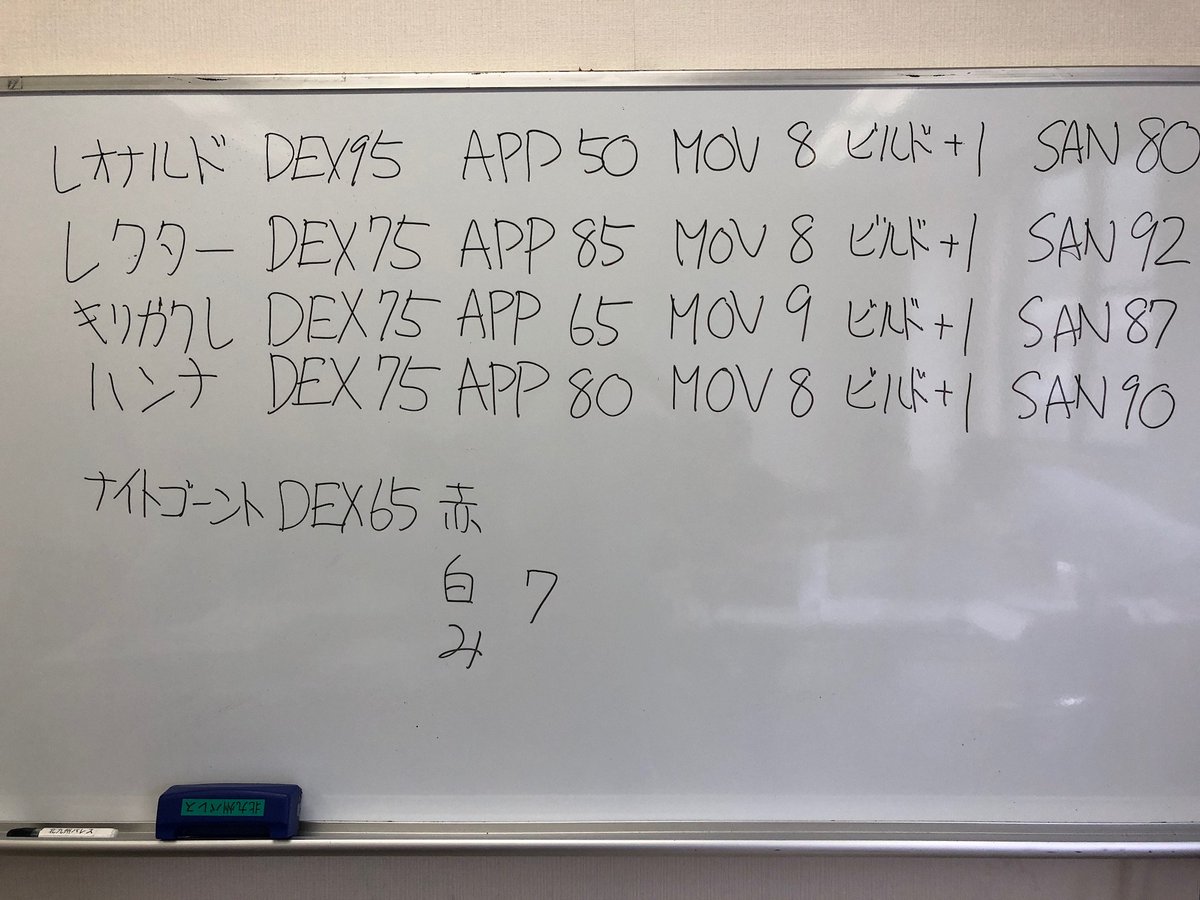 レオナルド DEX95 APP50 MOV 8 ビルド+1 SAN80
レクター DEX75 APP85 MOV 8 ビルド+1 SAN92
キリガクレ DEX75 APP 65 MOV 9 ビルド+1 SAN87
ハンナ DEX75 APP80 MOV 8 ビルド+1 SAN90
ナイトゴーント DEX65 赤
白 7
み
北九州パレス
北九州パレス